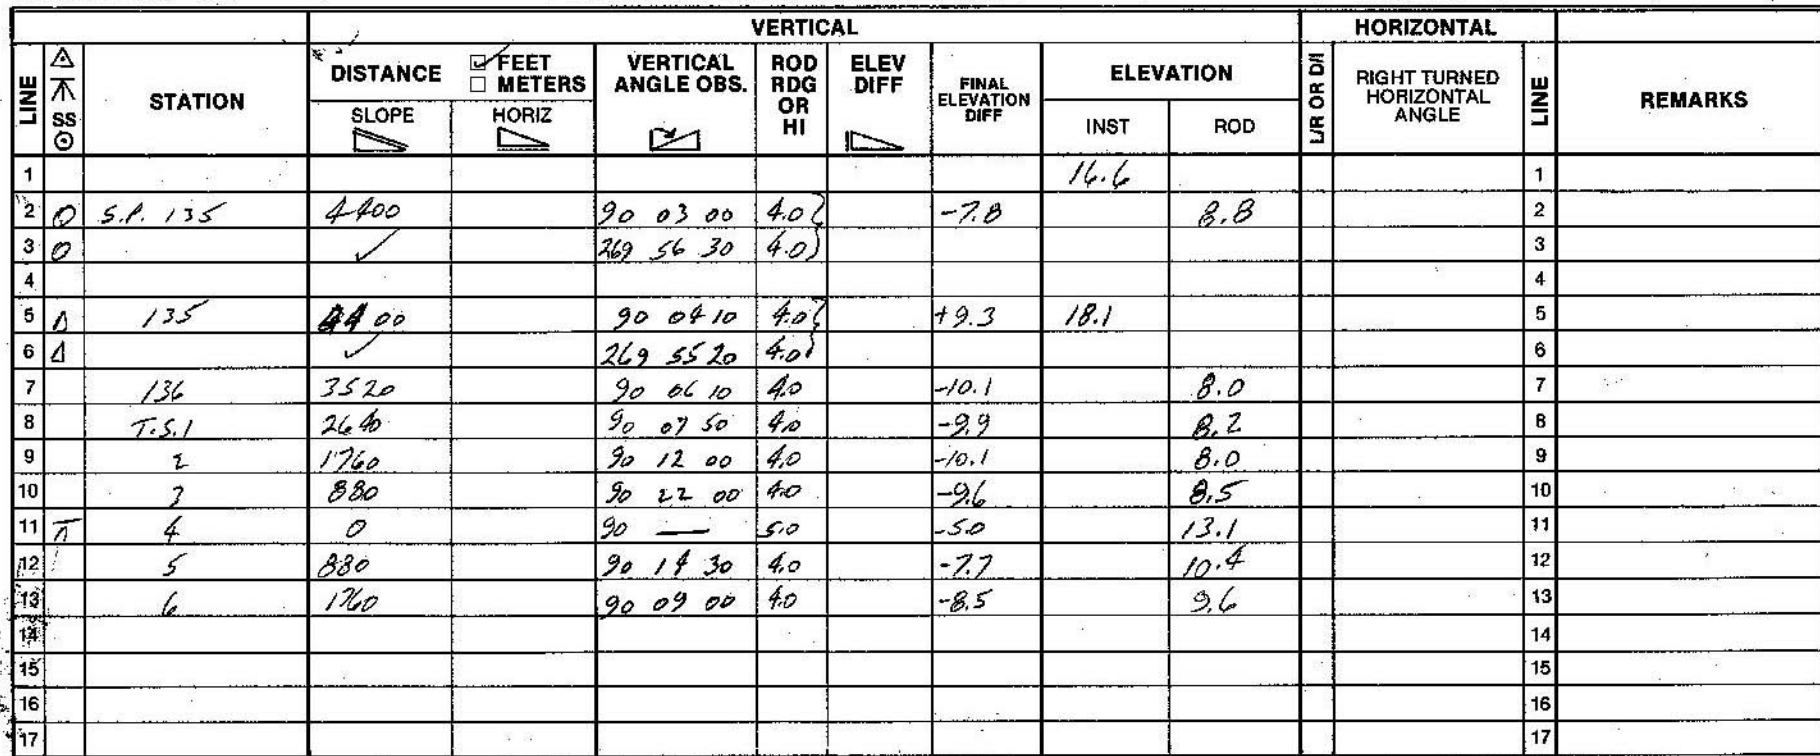 VERTICAL HORIZONTAL
LINE SS STATION DISTANCE ☑ FEET ☐ METERS SLOPE HORIZ VERTICAL ANGLE OBS. ROD RDG OR HI ELEV DIFF FINAL ELEVATION DIFF ELEVATION INST ROD L/R OR D/I RIGHT TURNED HORIZONTAL ANGLE LINE REMARKS
1 16.6 1
2 S.P. 135 4400 90 03 00 4.0 -7.8 8.8 2
3 ✓ 269 56 30 4.0 3
4 4
5 Δ 135 4400 90 04 10 4.0 +9.3 18.1 5
6 Δ ✓ 269 55 20 4.0 6
7 136 3520 90 06 10 4.0 -10.1 8.0 7
8 T.S.1 2640 90 07 50 4.0 -9.9 8.2 8
9 2 1760 90 12 00 4.0 -10.1 8.0 9
10 3 880 90 22 00 4.0 -9.6 8.5 10
11 4 0 90 — 5.0 -5.0 13.1 11
12 5 880 90 14 30 4.0 -7.7 10.4 12
13 6 1760 90 09 00 4.0 -8.5 9.6 13
14 14
15 15
16 16
17 17